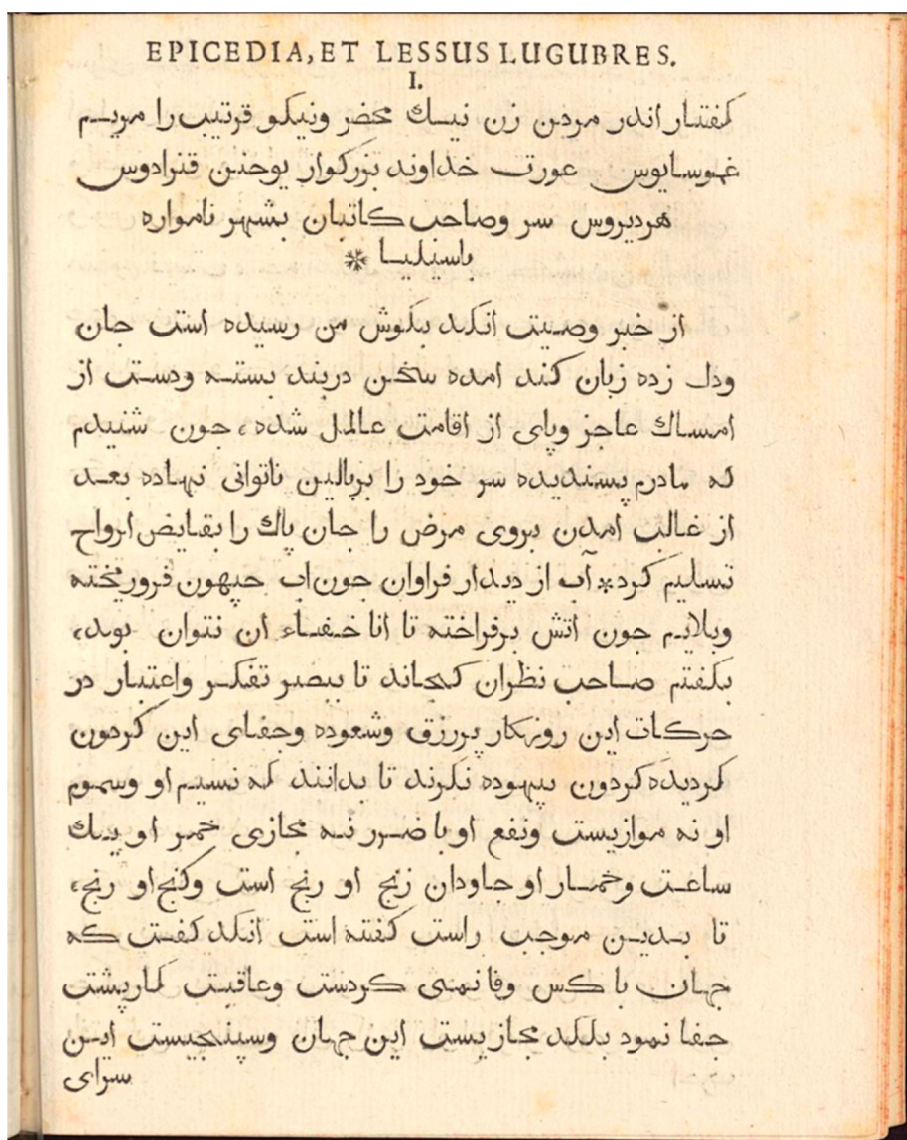 EPICEDIA, ET LESSUS LUGUBRES.
I.
كفتار اندر مردن زن نيك محضر ونيكو قرتيب را مريم
غهوسايوس عورت خداوند بزركوار يوحنن قنرادوس
هرديروس سر وصاحب كاتبان بشهر نامواره
باسيليا
از خبر وصيت انكه بكوش من رسيده است جان
ودل زده زبان كند امده سخن دربند بسته ودست از
امساك عاجز وپاى از اقامت عاطل شده، جون شنيدم
كه مادرم پسنديده سر خود را بربالين ناتوانى نهاده بعد
از غالب امدن بروى مرض را جان پاك را بقايض ارواح
تسليم كرد آب از ديدار فراوان جون اب جيهون فروريخته
وبلايم جون اتش برفراخته تا انا خفاء ان نتوان بود،
بكفتم صاحب نظران كجاند تا ببصر تفكر واعتبار در
حركات اين روزكار پرزق وشعوده وجفاى اين كردون
كرديده كردون بيهوده نكرند تا بدانند كه نسيم او وسموم
او نه موازيست ونفع او با ضرر نه مجازى خمر او يك
ساعت وخمار او جاودان زنج او رنج است وكنج او رنج،
تا بدين موجب راست كفته است انكه كفت كه
جهان با كس وفا نمى كردست وعاقبت كارپشت
جفا نمود بلكه مجازيست اين جهان وسپنجيست اين
سراى